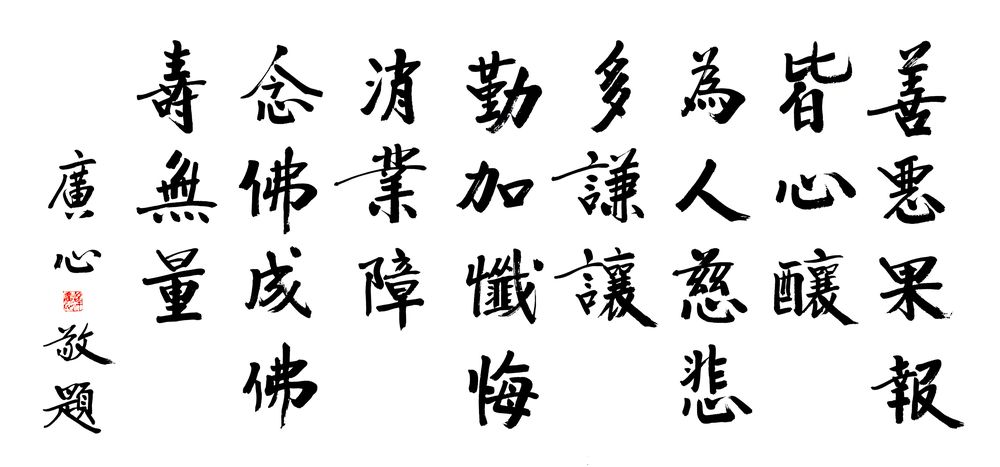 善惡果報
皆心釀
為人慈悲
多謙讓
勤加懺悔
消業障
念佛成佛
壽無量
廣心敬題